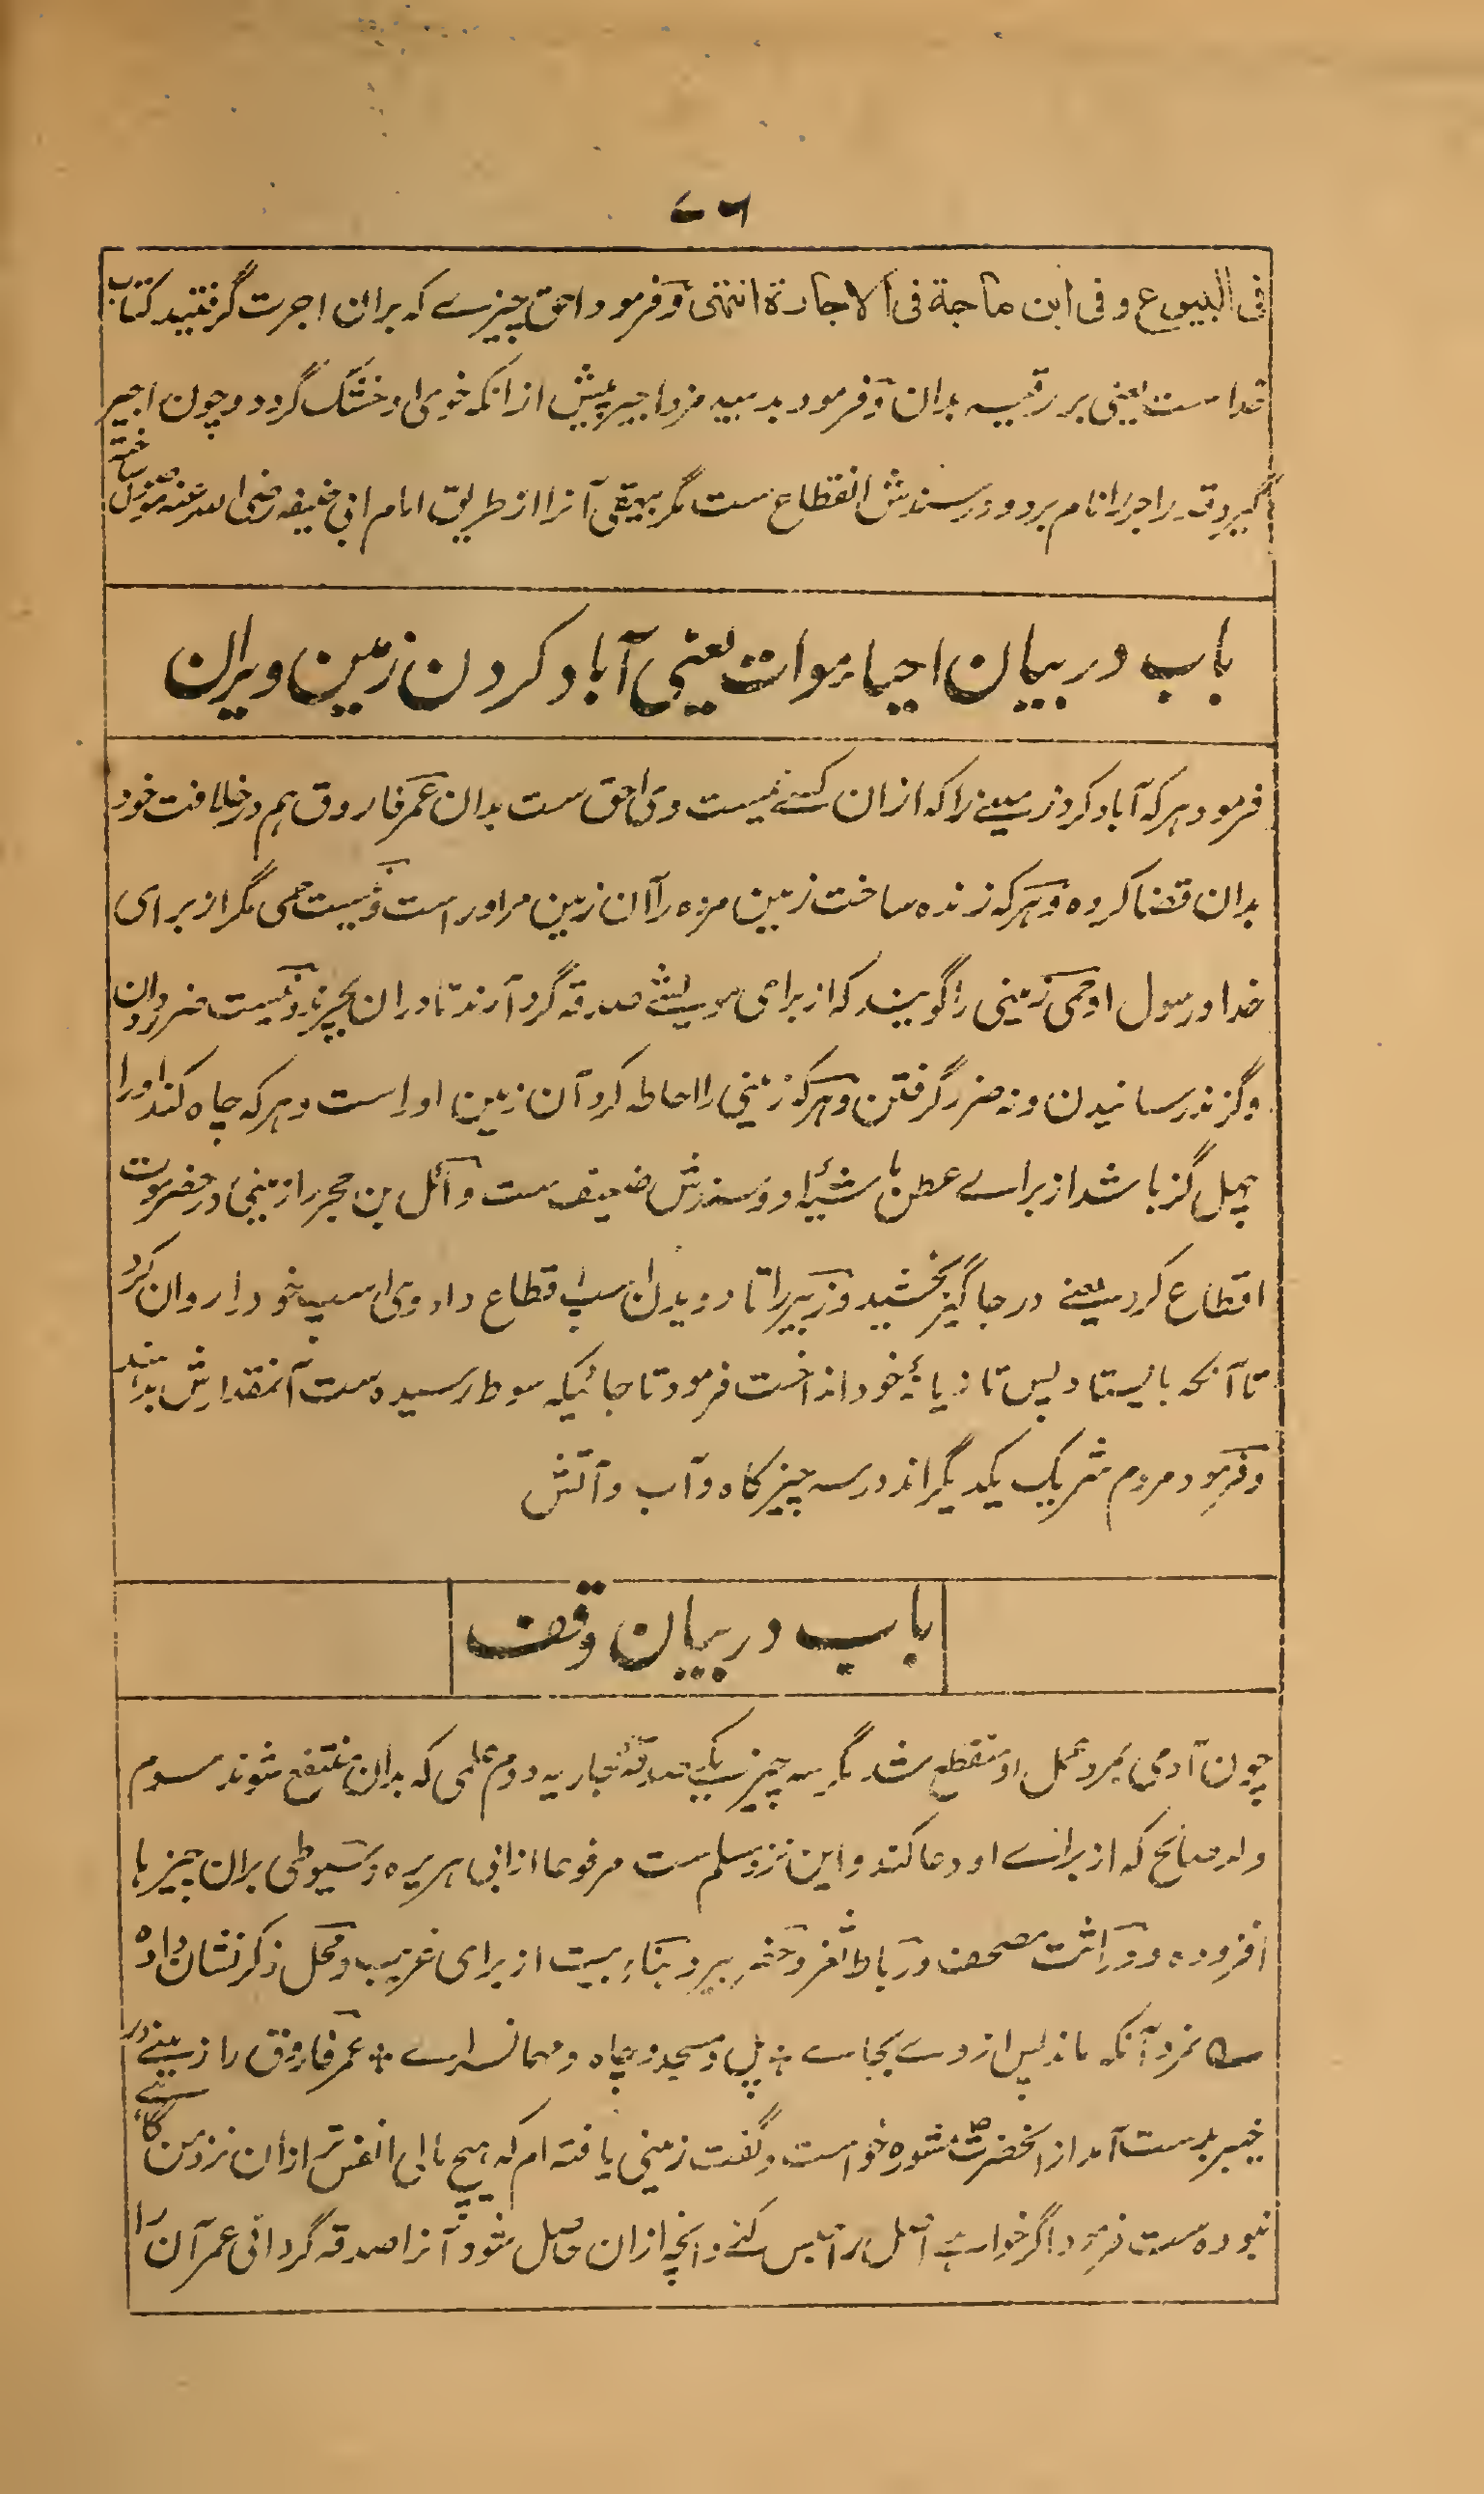 ۷۶
فی البیوع و فی ابن ماجة فی الاجارة انتهی و فرمود احق چیزے که بران اجرت گرفتید کتاب
خداست یعنی بر رقیه بدان و فرمود بدهید مزد اجیر پیش از انکه خوی او خشک گردد و چون اجیر
گیرد قدر اجر را نام برد و در سندش انقطاع ست مگر بیهقی آنرا از طریق امام ابی حنیفه رضی الله عنه موصول ساخته
باب در بیان احیاء موات یعنی آباد کردن زمین ویران
فرمود هرکه آباد کرد زمینے را که ازان کسے نیست وی احق ست بدان عمر فاروق هم در خلافت خود
بدان قضا کرده و هرکه زنده ساخت زمین مرده را آن زمین مر اوراست و نیست حمی مگر از برای
خدا و رسول او حمی زمینی را گویند که از برای مویشے صدقه گرد آرند تا دران بچرند و نیست ضرر دران
و گزند رسانیدن و نه ضرر گرفتن و هرکه زمینی را احاطه کرد آن زمین اوراست و هرکه چاه کند او را
چهل گز باشد از براے عطن ماشیهٔ او و سندش ضعیف ست وائل بن حجر را زمینی در حضرموت
اقطاع کرد یعنے در جاگیر بخشید و زبیر را تا دویدن اسپ اقطاع داد وی اسپ خود را روان کرد
تا آنکه بایستاد پس تازیانهٔ خود انداخت فرمود تا جائیکه سوط رسیده ست آنقدرش بدهند
و فرمود مردم شریک یکدیگراند در سه چیز کاه و آب و آتش
باب در بیان وقف
چون آدمی بمرد عمل او منقطع شد مگر سه چیز یکے صدقهٔ جاریه دوم علمی که بدان منتفع شوند سوم
ولد صالح که از براے او دعا کند و این نزد مسلم ست مرفوعا از ابی هریره و سیوطی بران چیزها
افزوده و وراثت مصحف و رباط ثغر و حفر بیر و بناء بیت از برای غریب و محل ذکر نشان داده
ے نمرد آنکه ماند پس از وے بجاے ٭ پل و مسجد و چاه و مهمانسراے ٭ عمر فاروق را زمینے در
خیبر بدست آمد از آنحضرت ص مشوره خواست و گفت زمینی یافته ام که هیچ مالی انفس تر ازان نزد من گاہے
نبوده ست فرمود اگر خواهی اصل را حبس کنے و آنچه ازان حاصل شود آنرا صدقه گردانی عمر آن را